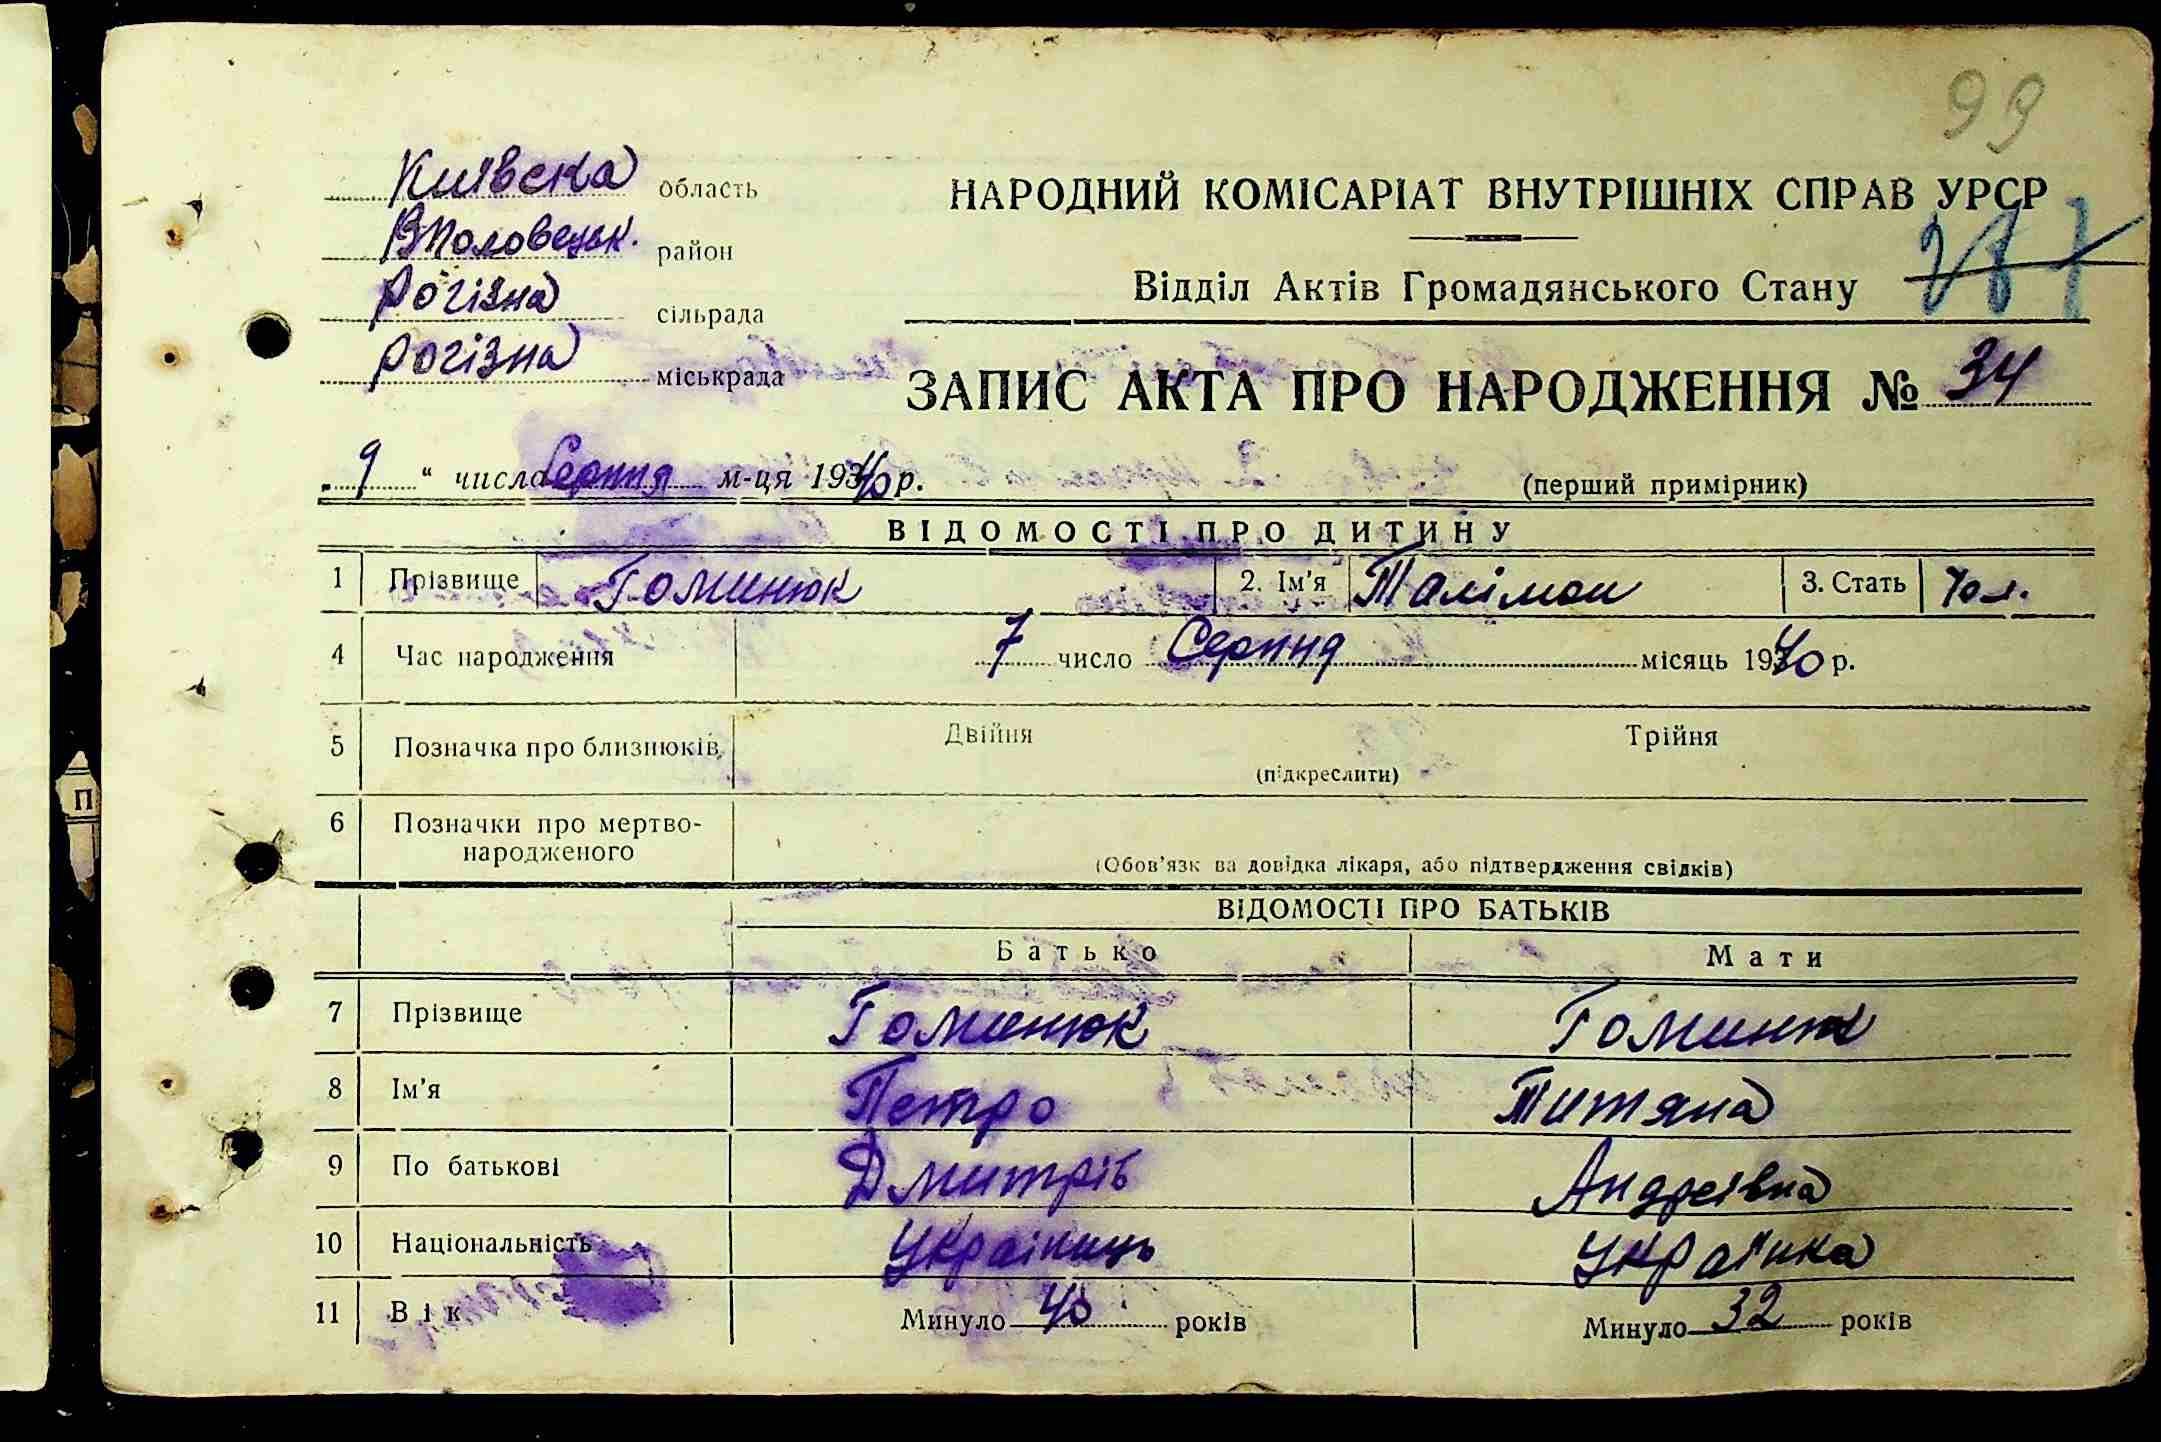 99
Київска область
НАРОДНИЙ КОМІСАРІАТ ВНУТРІШНІХ СПРАВ УРСР
ВПоловецьк. район
Рогізна сільрада
Відділ Актів Громадянського Стану
Рогізна міськрада
ЗАПИС АКТА ПРО НАРОДЖЕННЯ № 34
9 “ числа Серпня м-ця 1940 р.
(перший примірник)
ВІДОМОСТІ ПРО ДИТИНУ
1 Прізвище Гоминюк 2. Ім'я 3. Стать Чол.
4 Час народження 7 число Серпня місяць 1940 р.
5 Позначка про близнюків Двійня Трійня
(підкреслити)
6 Позначки про мертво-
народженого
(Обов'язк ва довідка лікаря, або підтвердження свідків)
ВІДОМОСТІ ПРО БАТЬКІВ
Батько Мати
7 Прізвище Гоминюк Гоминюк
8 Ім'я Петро Титяна
9 По батькові Дмитрів Андреівна
10 Національність Українць Українка
11 Вік Минуло 40 років Минуло 32 років
П